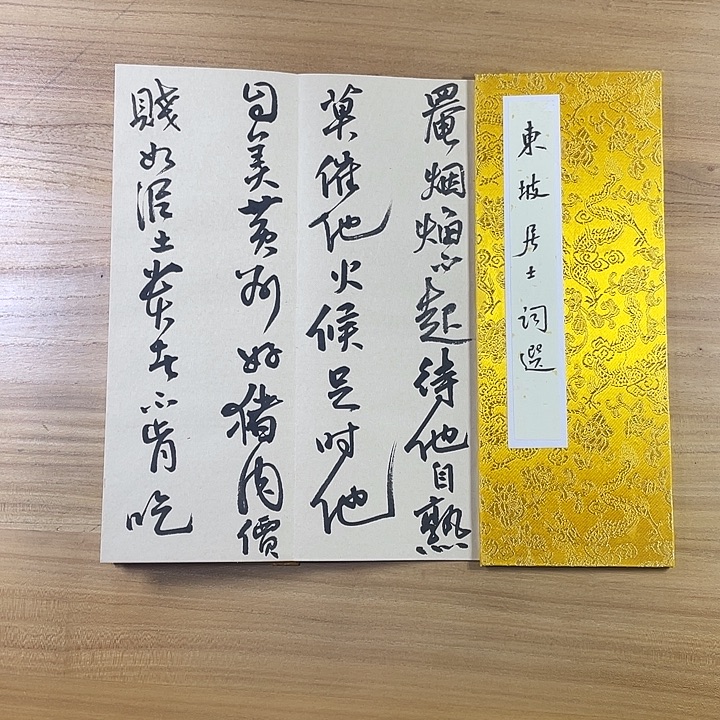 東坡居士詞選
罨烟焰不起待他自熟
莫催他火候足时他
自美黄州好猪肉價
賤如泥土貴者不肯吃